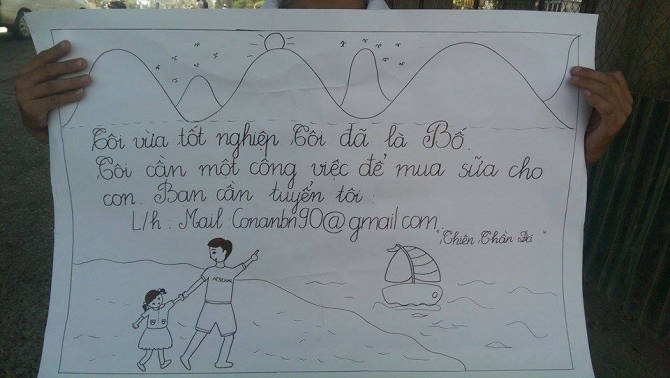 Tôi vừa tốt nghiệp Tôi đã là Bố.
Tôi cần một công việc để mua sữa cho
con. Bạn cần tuyển tôi.
L/h. Mail: Conanbn90@gmail.com.
"Thiên Thần Đá"
ARSENAL